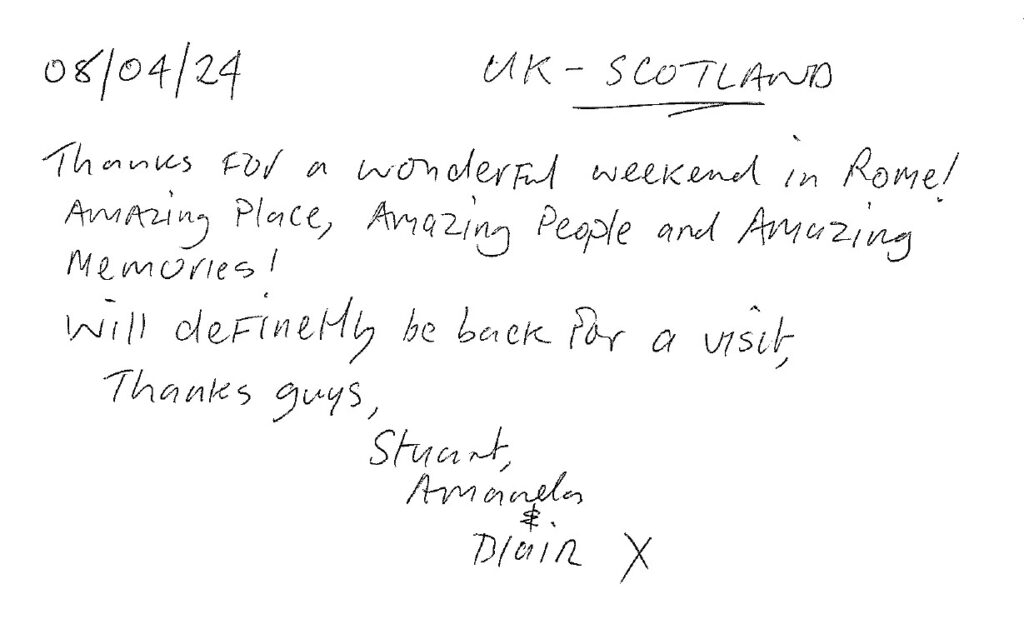 08/04/24 UK - SCOTLAND
Thanks for a wonderful weekend in Rome!
Amazing Place, Amazing People and Amazing
Memories!
Will definetly be back for a visit,
Thanks guys,
Stuart,
Amanda
&
Blair X